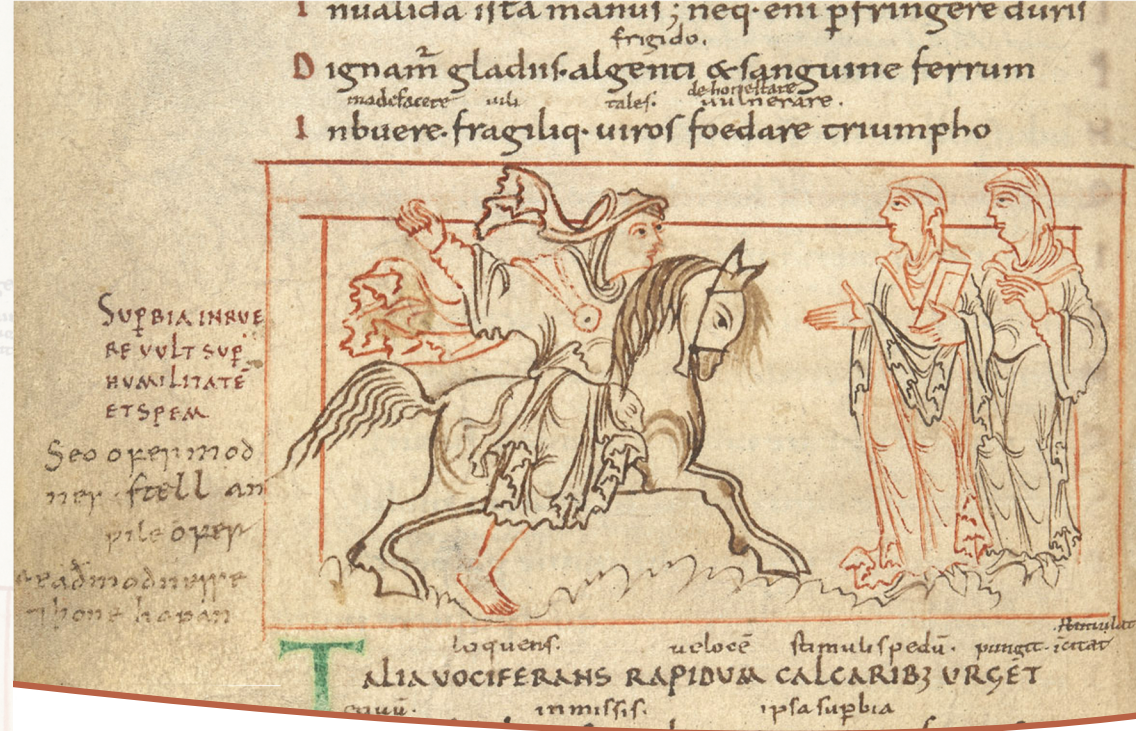 I nualida ista manus; neq· eni p̄fringere duris
frigido.
D ignam̄ gladiis· algenti & sanguine ferrum
madefacere uili tales· dehonestare uulnerare.
I nbuere· fragiliq· uiros foedare triumpho
SUP̄BIA INRUE
RE VULT SUP̄
HUMILITATĒ
ET SPEM
Seo ofermod
ner· ſtell an
pile ofer
eadmodnesse
⁊ hone
loquens· uelocē stimulis pedū· pungit· icitat
TALIA VOCIFERANS RAPIDUM CALCARIBꝫ URGET
equū· inmissis· ipsa sup̄bia